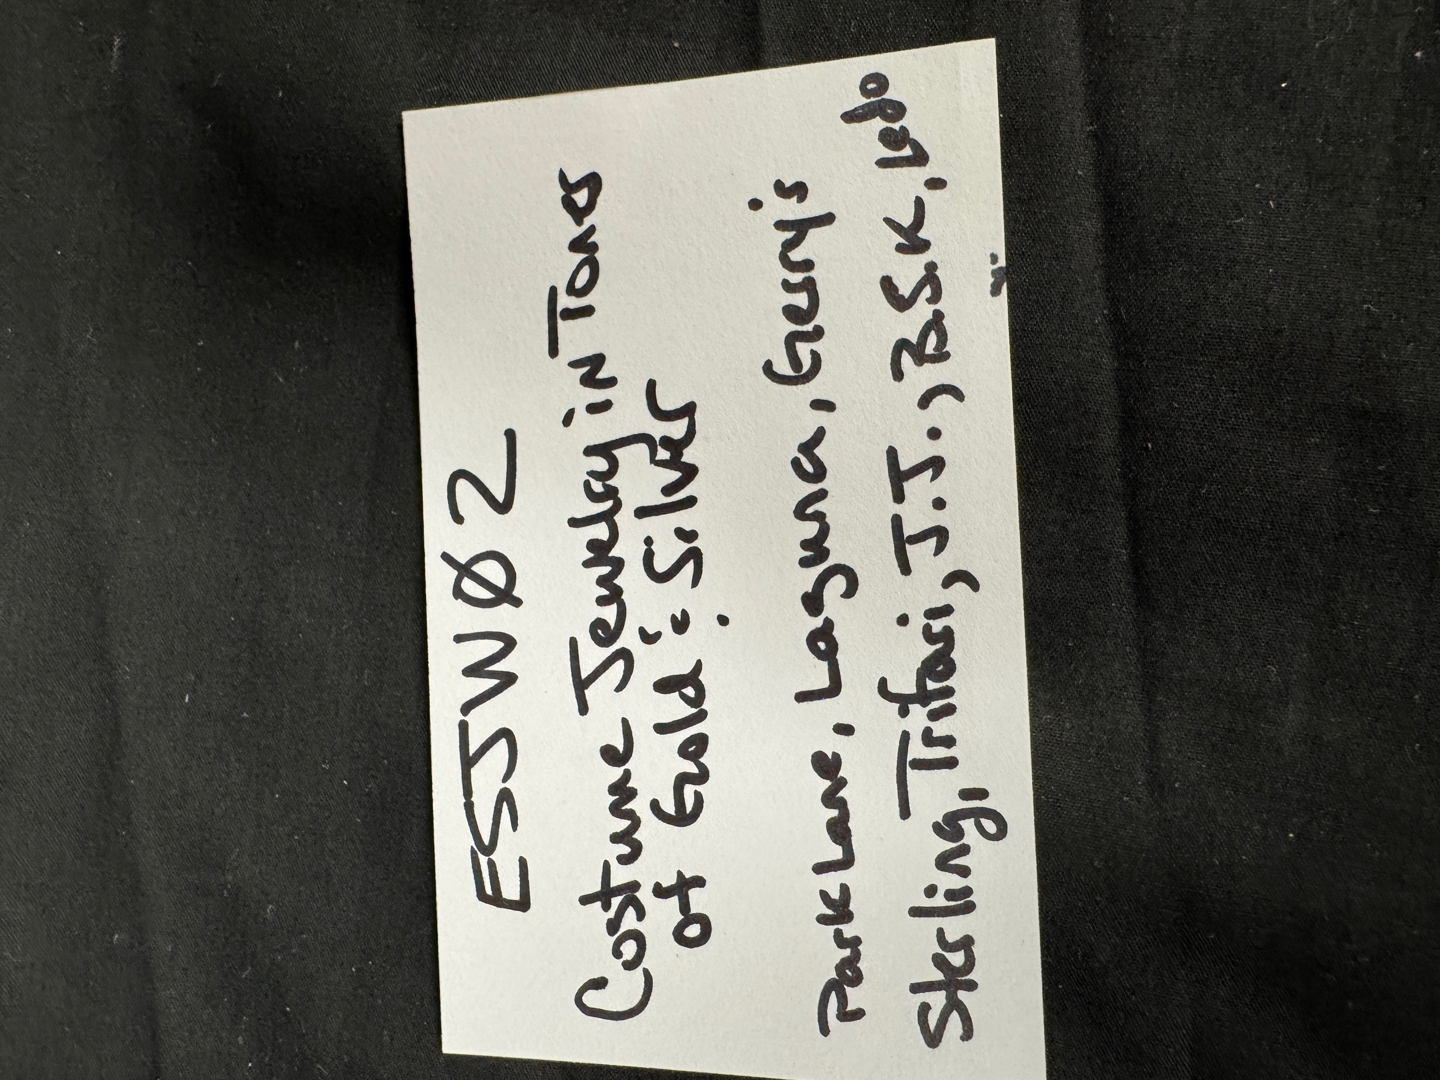 ESJW02
Costume Jewelry in Tones
of Gold & Silver
Park Lane, Laguna, Gerry's
Sterling, Trifari, J.J., B.S.K,